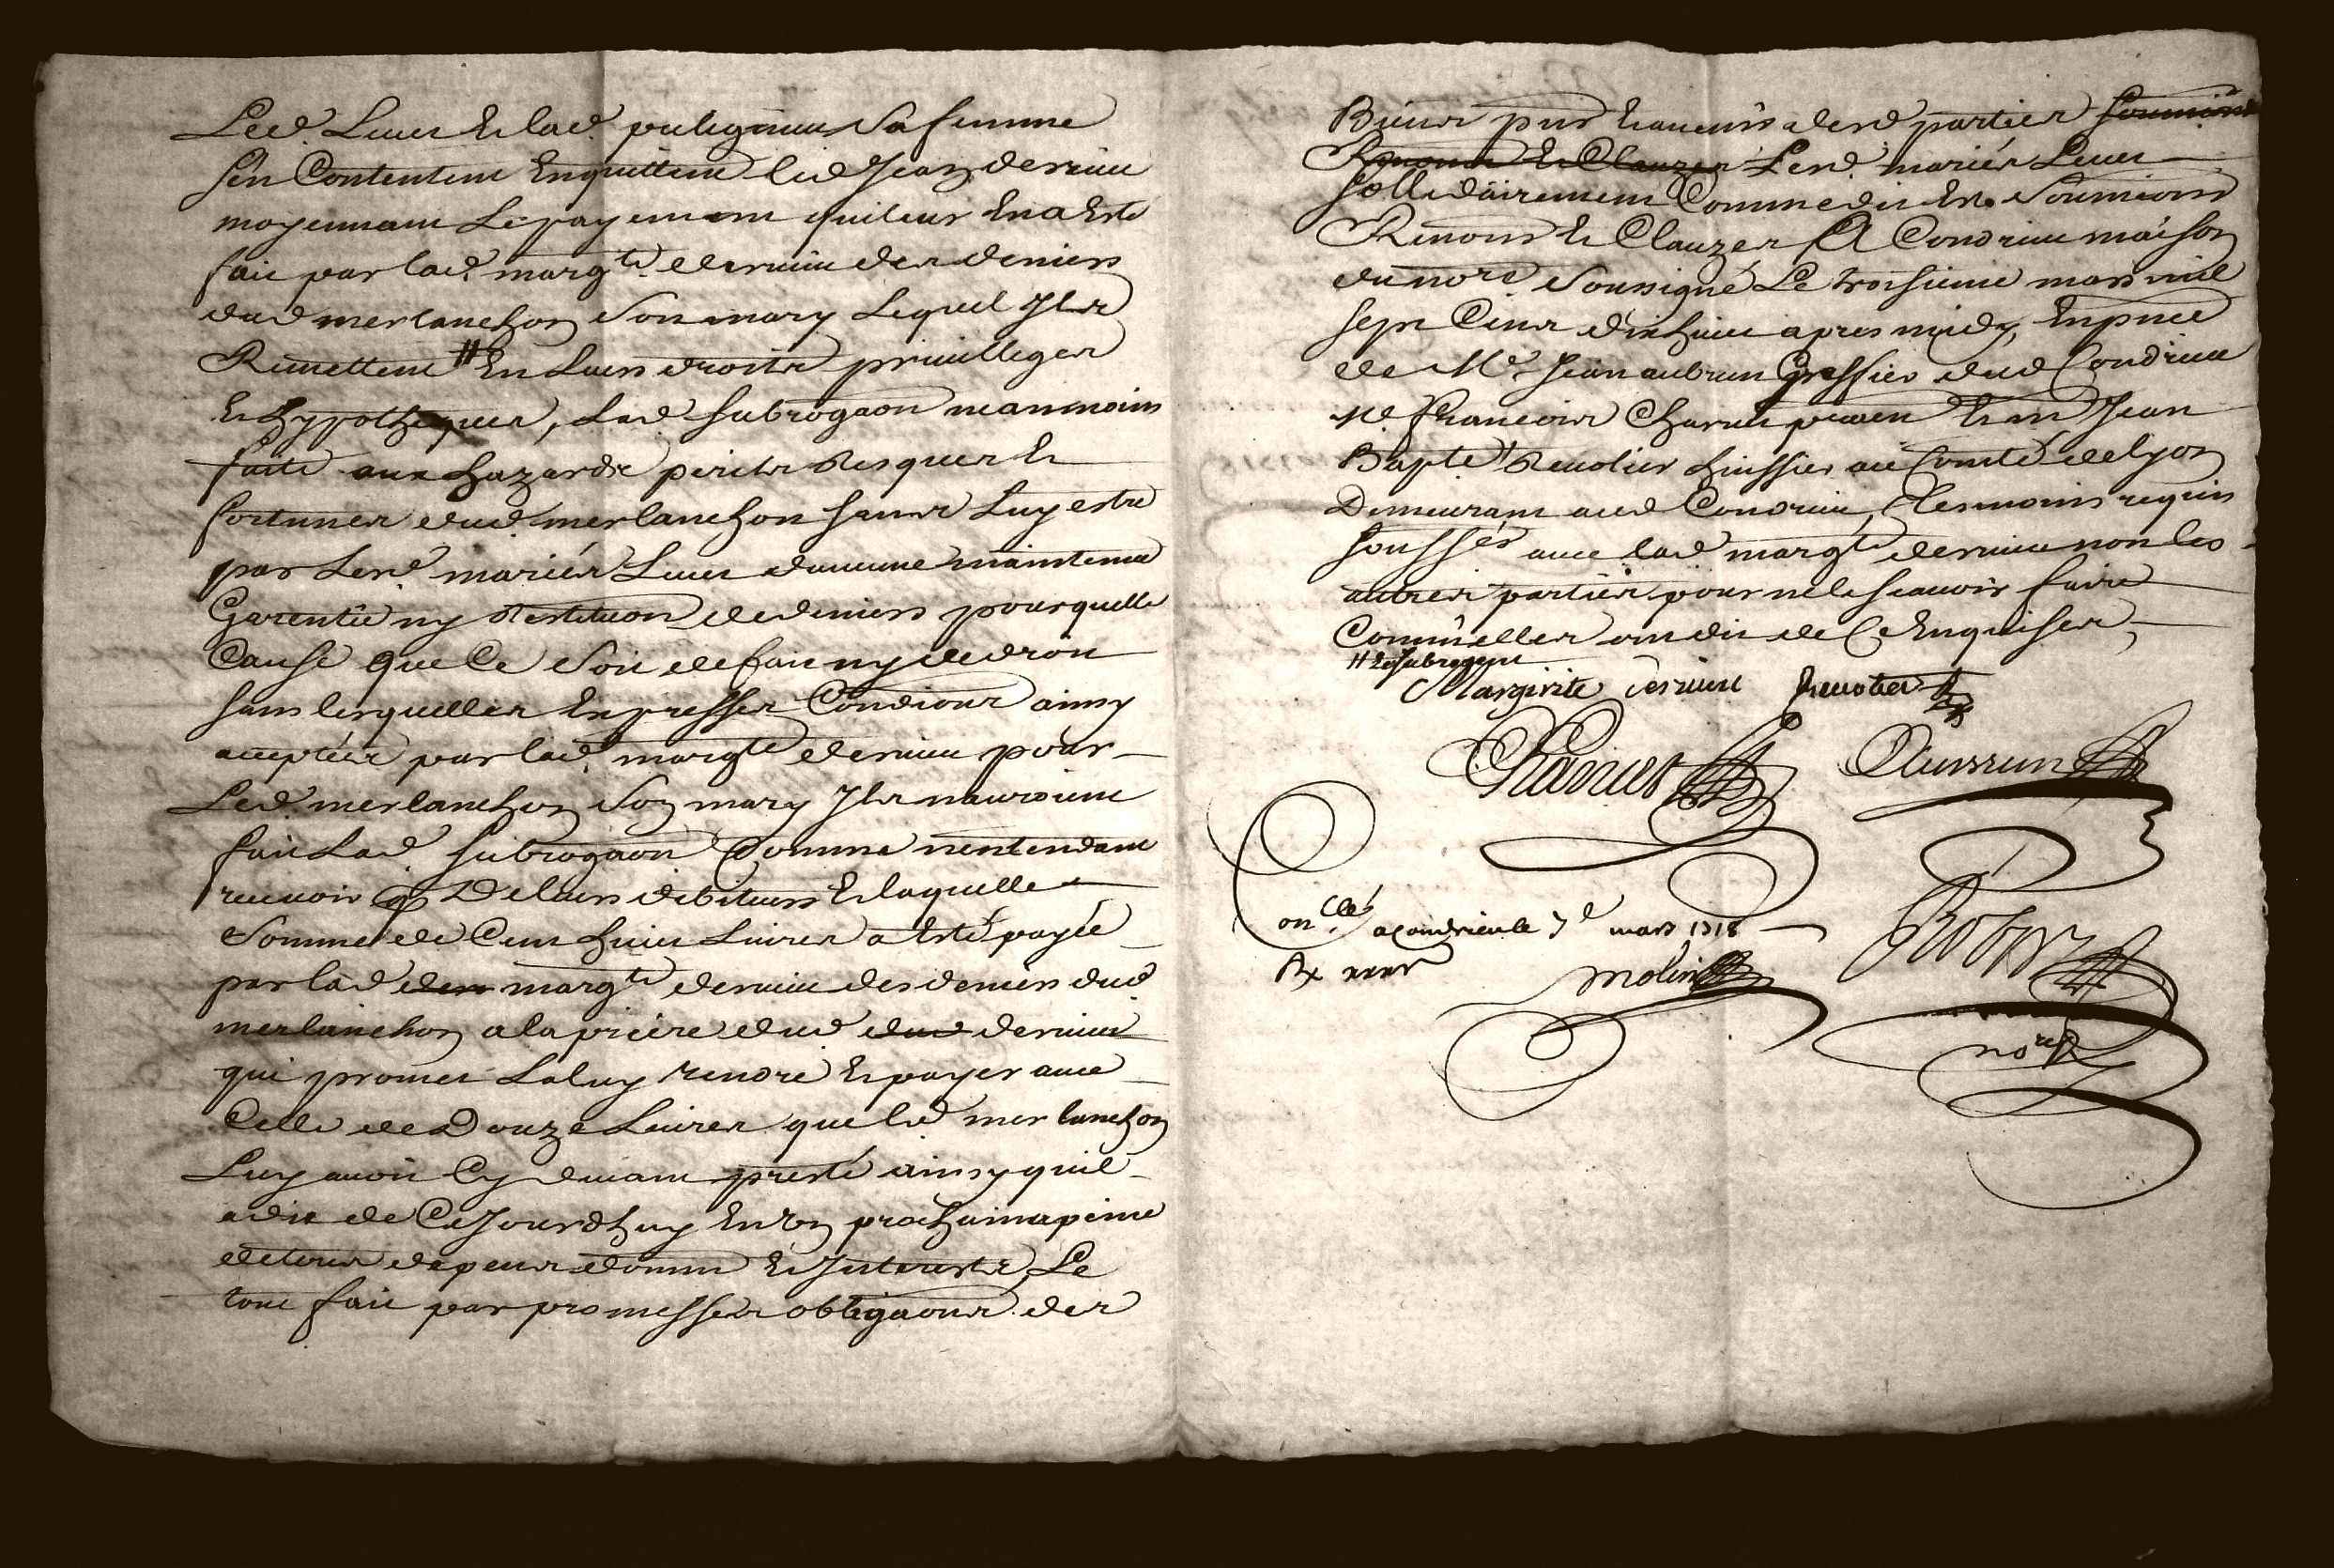 Led. Luer & lad. puligneu Sa femme
Sen Contentent Enquittent led Jean dervieu
moyennant Le payement quileur En a Esté
fait par lad. margte. dervieu des deniers
dud merlanchon Son mary Lequel Ils
Remettent # En Leurs droits privilleges
Et hypotheques, Lad subrogaon neanmoins
faite aux hazards perils Risques Et
fortunes dud. merlanchon sans Luy estre
par Lesd mariés Luer daucune maintenue
Garentie ny Restituon de deniers pour quelle
Cause que Ce Soit de fait ny de droit
sans lesquelles Expresses Condions ainsy
acceptées par lad. margte dervieu pour
Led merlanchon Son mary Ils nauroient
fait Lad. subrogaon Comme nentendant
recevoir q Deleurs debiteurs Et laquelle
Somme de Cent huit Livres a Esté payée
par lad der margte dervieu des deniers dud
merlanchon a la priere dud dud dervieu
qui promet La luy rendre Et payer avec
Celle de Douze Livres que led merlanchon
Luy avoit Cy devant presté ainsy quil
a dit de Ce Jourdhuy En Un prochain a peine
de tous depens domm Et Interests, Le
tout fait par promesses obligaons des
Biens pnts Et advenirs desd parties soumions
Renons Et Clauzes Lesd. mariés Luer
sollidairement Comme dit Est Soumions
Renons Et Clauzes, A Condrieu maison
du nore Soussigné Le troisieme mars mil
sept Cens dixhuit apres midy, En pnce
de Me Jean aubrun Greffier dud Condrieu
Me. Francois Charvet praen Et me Jean
Bapte Revolier huissier au Comté de Lyon
Demeurant aud Condrieu, tesmoins requis
soussés avec lad margte dervieu non les
autres parties pour ne le scavoir faire
Comm'elles ont dit de Ce Enquises
# Et Subrogent
Margirite dervieu Revolier
Charvet Aubrun
onclé. a Condrieu le 7e mars 1718
Rx xxxs
molin Robert
nore